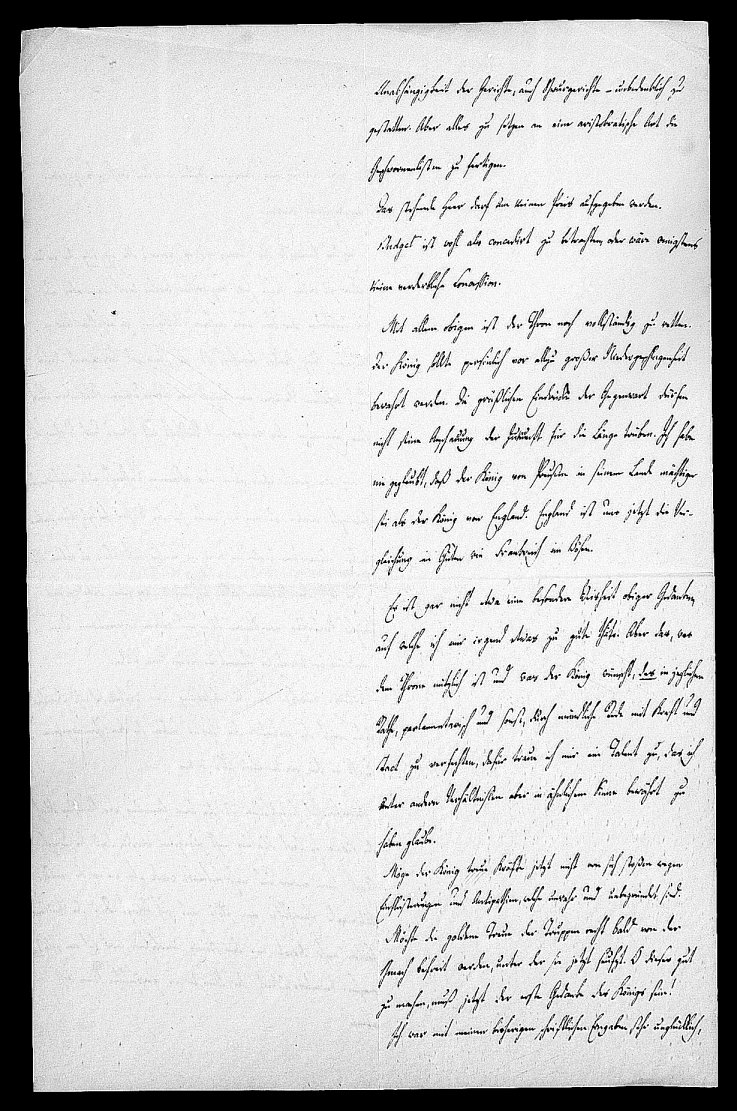 Unabhängigkeit der Gerichte, auch Schwurgerichte – unbedenklich zu
gestatten. Aber alles zu setzen an eine aristokratische Art die
Geschwornenlisten zu fertigen.
Das stehende Heer darf um keinen Preis aufgegeben werden.
Budget ist wohl als concedirt zu betrachten, oder wäre wenigstens
keine verderbliche Concession.
Mit allem obigen ist der Thron noch vollständig zu retten.
Der König sollte persönlich vor allzu großer Niedergeschlagenheit
bewahrt werden. Die gräßlichen Eindrücke der Gegenwart dürfen
nicht seine Anschauung der Zukunft für die Länge trüben. Ich habe
nie geglaubt, daß der König von Preußen in seinem Lande mächtiger
sei als der König von England. England ist uns jetzt die Ver-
gleichung im Guten wie Frankreich im Bösen.
Es ist gar nicht etwa eine besondere Weisheit obiger Gedanken,
auf welche ich mir irgend etwas zu gute thäte. Aber das, was
dem Throne nützlich ist und was der König wünscht, das in jeglichem
Rathe, parlamentarisch und sonst, durch mündliche Rede mit Kraft und
Tact zu verfechten, dafür traue ich mir ein Talent zu, das ich
unter andern Verhältnissen aber in ähnlichem Sinne bewährt zu
haben glaube.
Möge der König treue Kräfte jetzt nicht von sich stoßen wegen
Einflüsterungen und Antipathien, welche unwahr und unbegründet sind.
Möchte die goldene Treue der Truppen recht bald von der
Schmach befreit werden, unter der sie jetzt seufzt. O dieses gut
zu machen, muß jetzt der erste Gedanke des Königs sein!
Ich war mit meinen bisherigen schriftlichen Eingaben sehr unglücklich,